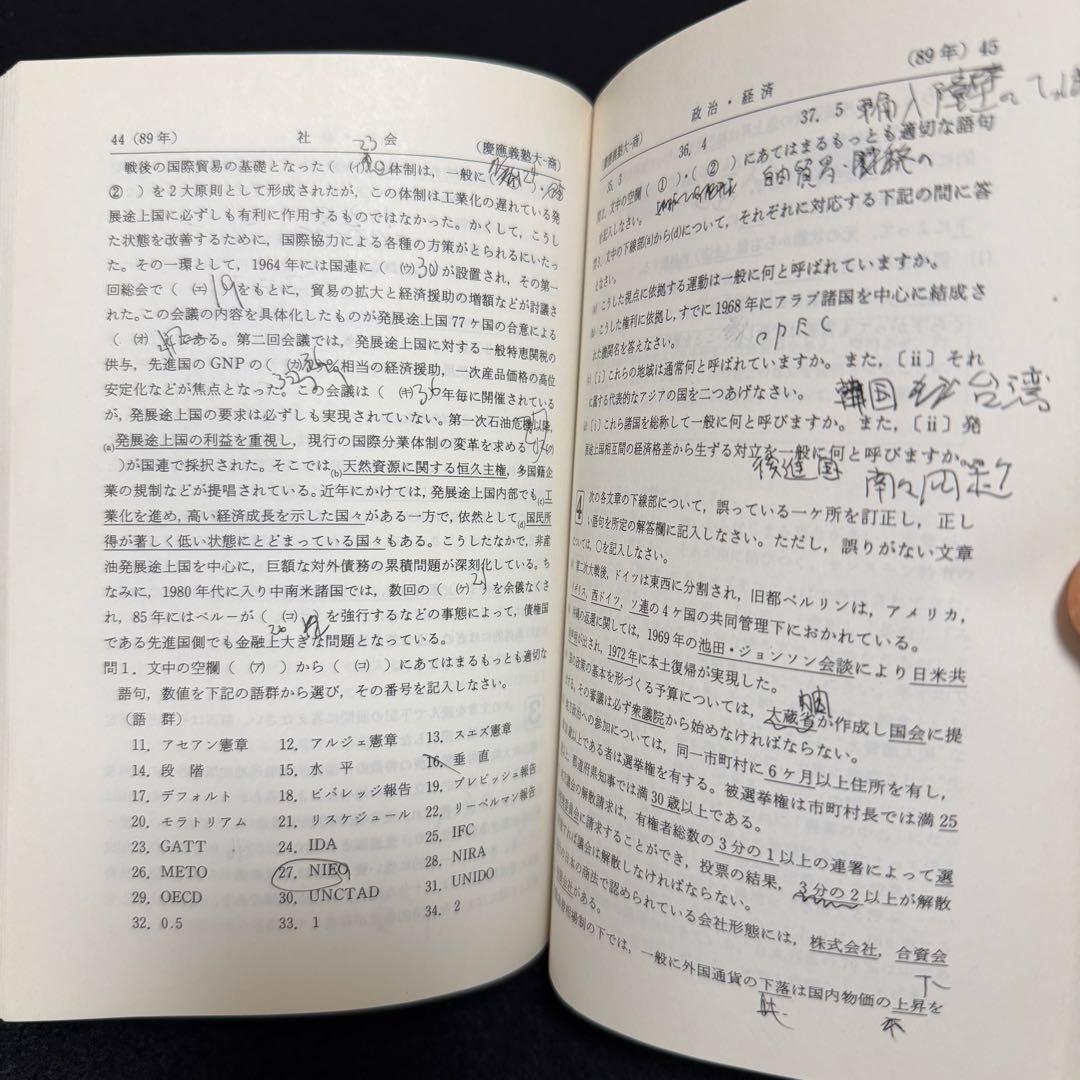 44 (89年) 社 会 (慶應義塾大-商)
23
戦後の国際貿易の基礎となった( (イ) )体制は，一般に(
② )を2大原則として形成されたが，この体制は工業化の遅れている発
展途上国に必ずしも有利に作用するものではなかった。かくして，こうし
た状態を改善するために，国際協力による各種の方策がとられるにいたっ
た。その一環として，1964年には国連に( (ウ) 30 が設置され，その第一
回総会で( (エ) 19 をもとに，貿易の拡大と経済援助の増額などが討議さ
れた。この会議の内容を具体化したものが発展途上国77ヶ国の合意による
( (オ) である。第二回会議では，発展途上国に対する一般特恵関税の
供与，先進国のGNPの( (カ) %相当の経済援助，一次産品価格の高位
安定化などが焦点となった。この会議は( (キ) 36 年毎に開催されている
が，発展途上国の要求は必ずしも実現されていない。第一次石油危機以降，
(a)発展途上国の利益を重視し，現行の国際分業体制の変革を求める
)が国連で採択された。そこでは(b)天然資源に関する恒久主権，多国籍企
業の規制などが提唱されている。近年にかけては，発展途上国内部でも(c)工
業化を進め，高い経済成長を示した国々がある一方で，依然として(d)国民所
得が著しく低い状態にとどまっている国々もある。こうしたなかで，非産
油発展途上国を中心に，巨額な対外債務の累積問題が深刻化している。ち
なみに，1980年代に入り中南米諸国では，数回の( (ケ) 21 を余儀なくさ
れ，85年にはペルーが( (コ) )を強行するなどの事態によって，債権国
である先進国側でも金融上大きな問題となっている。
20
問1．文中の空欄( (ア) )から( (コ) )にあてはまるもっとも適切な
語句，数値を下記の語群から選び，その番号を記入しなさい。
(語 群)
11．アセアン憲章 12．アルジェ憲章 13．スエズ憲章
14．段 階 15．水 平 16．垂 直
17．デフォルト 18．ビバレッジ報告 19．プレビッシュ報告
20．モラトリアム 21．リスケジュール 22．リーベルマン報告
23．GATT 24．IDA 25．IFC
26．METO 27．NIEO 28．NIRA
29．OECD 30．UNCTAD 31．UNIDO
32．0.5 33．1 34．2
(慶應義塾大-商) 政治・経済 (89年) 45
35．3 36．4 37．5
輸入
問2．文中の空欄( ① )・( ② )にあてはまるもっとも適切な語句
を記入しなさい。
問3．文中の下線部(a)から(d)について，それぞれに対応する下記の問に答
えなさい。
こうした視点に依拠する運動は一般に何と呼ばれていますか。
こうした権利に依拠し，すでに1968年にアラブ諸国を中心に結成さ
れた機関名を答えなさい。
OPEC
〔i〕これらの地域は通常何と呼ばれていますか。また，〔ii〕それ
に属する代表的なアジアの国を二つあげなさい。
韓国 台湾
〔i〕これら諸国を総称して一般に何と呼びますか。また，〔ii〕発
展途上国相互間の経済格差から生ずる対立を一般に何と呼びますか。
後進国 南々問題
4 次の各文章の下線部について，誤っている一ヶ所を訂正し，正し
い語句を所定の解答欄に記入しなさい。ただし，誤りがない文章
については，○を記入しなさい。
第二次大戦後，ドイツは東西に分割され，旧都ベルリンは，アメリカ，
イギリス，西ドイツ，ソ連の4ヶ国の共同管理下におかれている。
沖縄の返還に関しては，1969年の池田・ジョンソン会談により日米共
同声明が出され，1972年に本土復帰が実現した。
国の政策の基本を形づくる予算については，大蔵省が作成し国会に提
内閣
する。その審議は必ず衆議院から始めなければならない。
地方政治への参加については，同一市町村に6ヶ月以上住所を有し，
歳以上である者は選挙権を有する。被選挙権は市町村長では満25
以上，都道府県知事では満30歳以上である。
議会の解散請求は，有権者総数の3分の1以上の連署によって選
挙管理委員会に請求することができ，投票の結果，3分の2以上が解散
すれば議会は解散しなければならない。
の日本の商法で認められている会社形態には，株式会社，合資会
会社がある。
相場制の下では，一般に外国通貨の下落は国内物価の上昇を
下